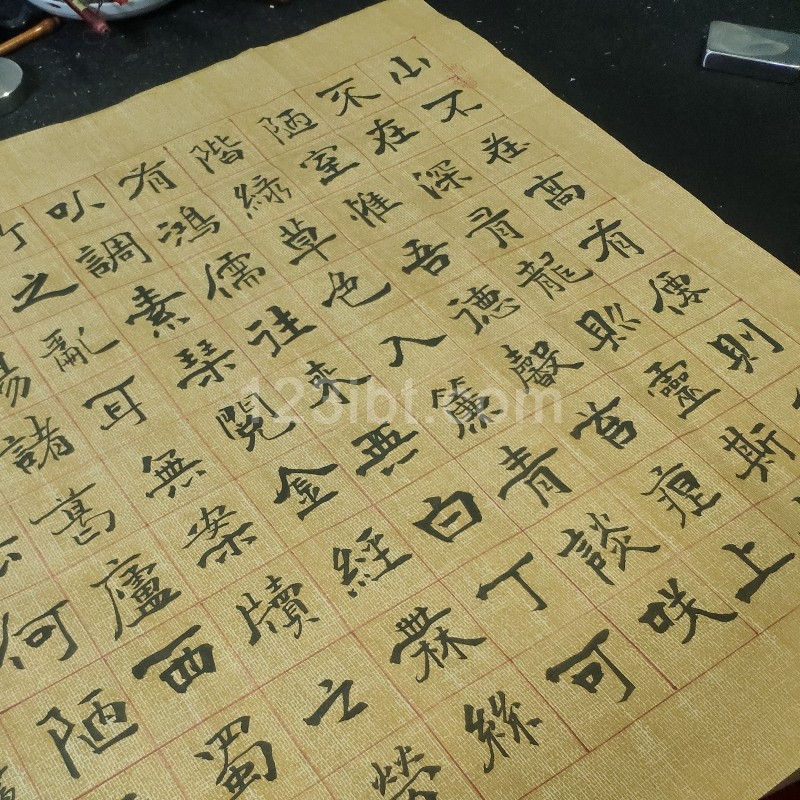 山不在高有僊則
不在深有龍則靈斯
陋室惟吾德馨苔痕上
階綠草色入簾青談咲
有鴻儒往來無白丁可
以調素琴閱金經無絲
之亂耳無案牘之勞
諸葛廬西蜀
何陋
123lbt.com